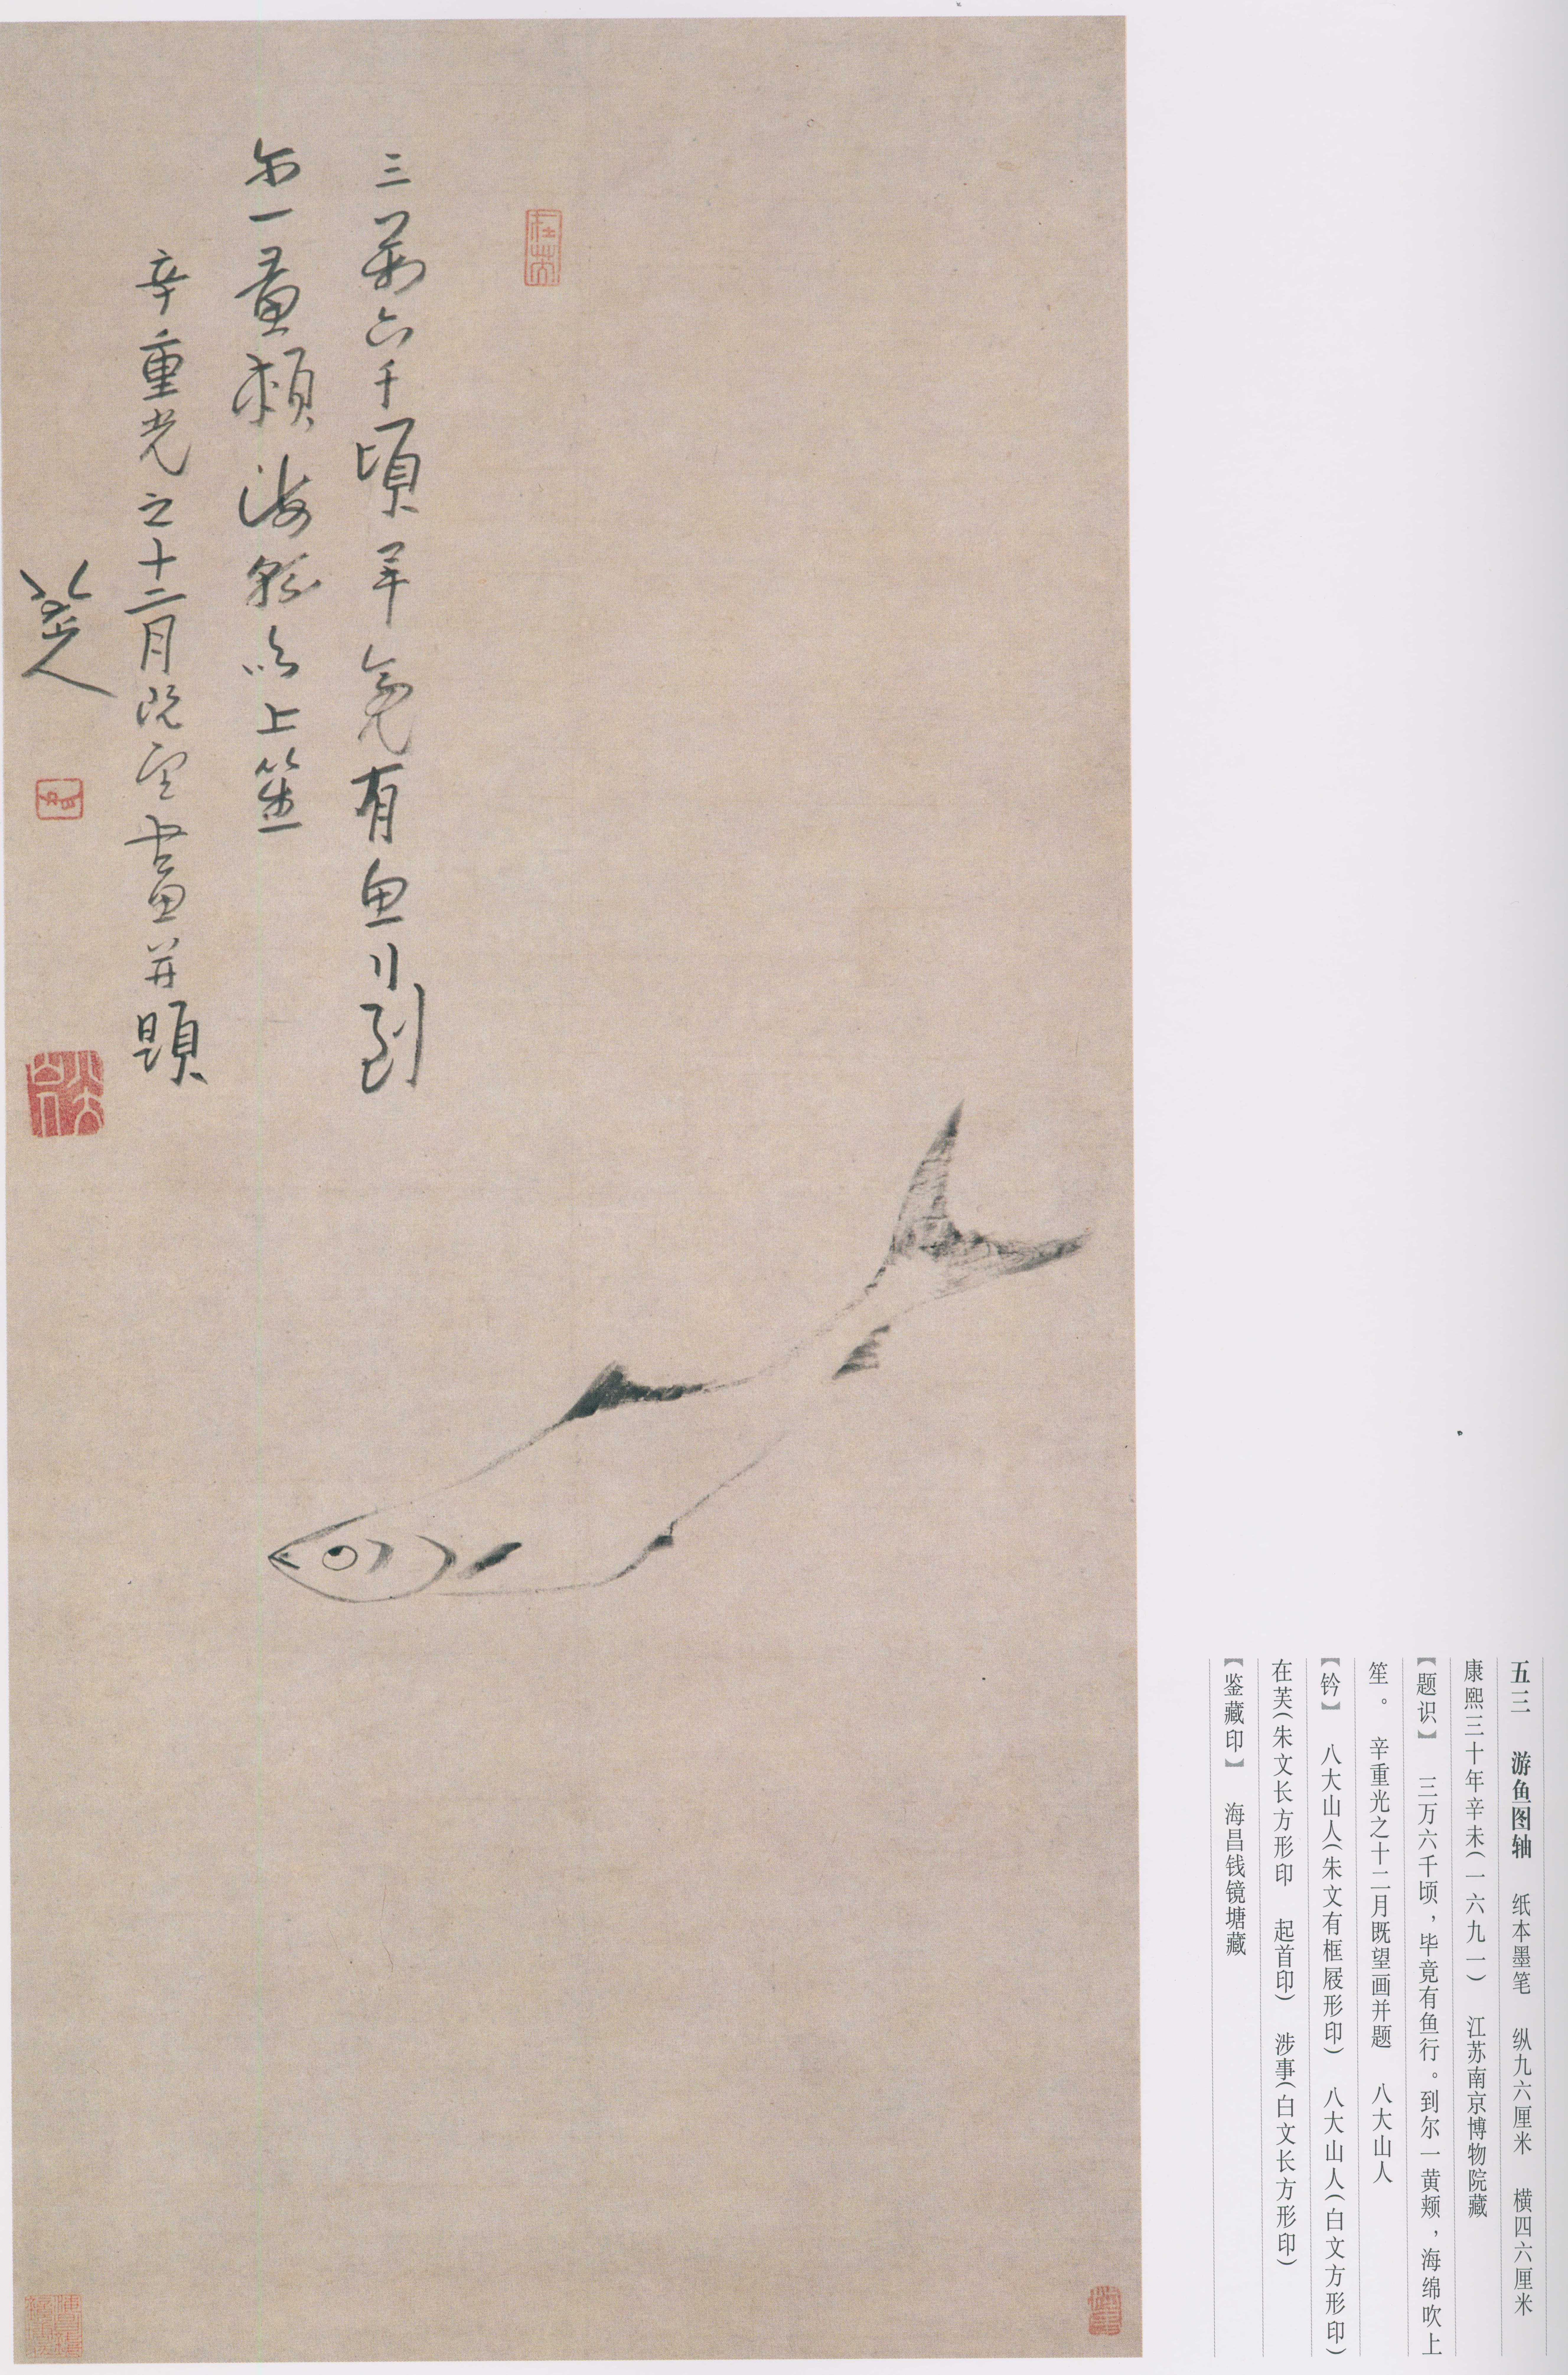 五三　游鱼图轴　纸本墨笔　纵九六厘米　横四六厘米
康熙三十年辛未（一六九一）　江苏南京博物院藏
【题识】　三万六千顷，毕竟有鱼行。到尔一黄颊，海绵吹上
笙。　辛重光之十二月既望画并题　八大山人
【钤】　八大山人（朱文有框屐形印）　八大山人（白文方形印）
在芙（朱文长方形印　起首印）　涉事（白文长方形印）
【鉴藏印】　海昌钱镜塘藏
在芙
三萬六千頃畢竟有魚行到
尔一黄頰海綿吹上笙
辛重光之十二月既望畫并題
八大山人
八大山人
涉事